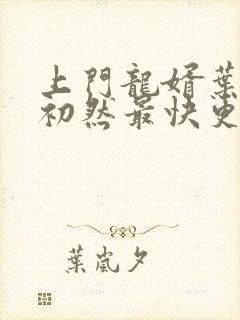 上門龍婿葉
初然最快更
葉嵐夕